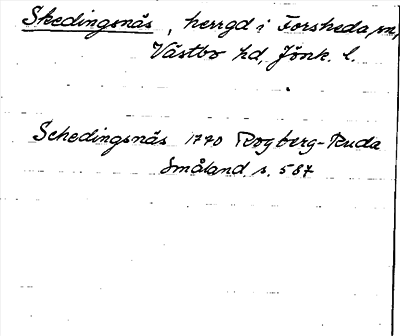 Skedingsnäs, herrgd i Forsheda sn,
Västbo hd, Jönk. l.
Schedingsnäs 1770 Rogberg-Ruda
Småland s. 587